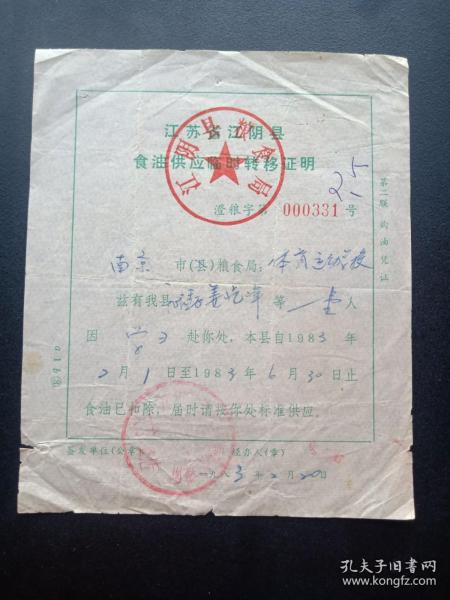 江苏省江阴县
食油供应临时转移证明
江阴县粮食局
澄粮字第 000331 号
2.5
第二联 购油凭证
南京 市(县)粮食局: 体育运动学校
兹有我县 等 壹 人
因 学习 赴你处,本县自1983年
2月1日至1983年6月30日止
食油已扣除,届时请按你处标准供应。
签发单位(公章) 经办人(章)
一九八三年2月20日
孔夫子旧书网
www.kongfz.com